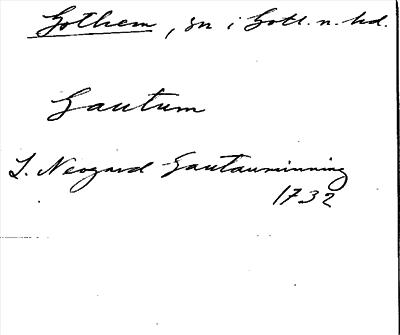 Gothem, sn i Gotl. n. hd.
Gautum
L. Neogard Gautauminning
1732